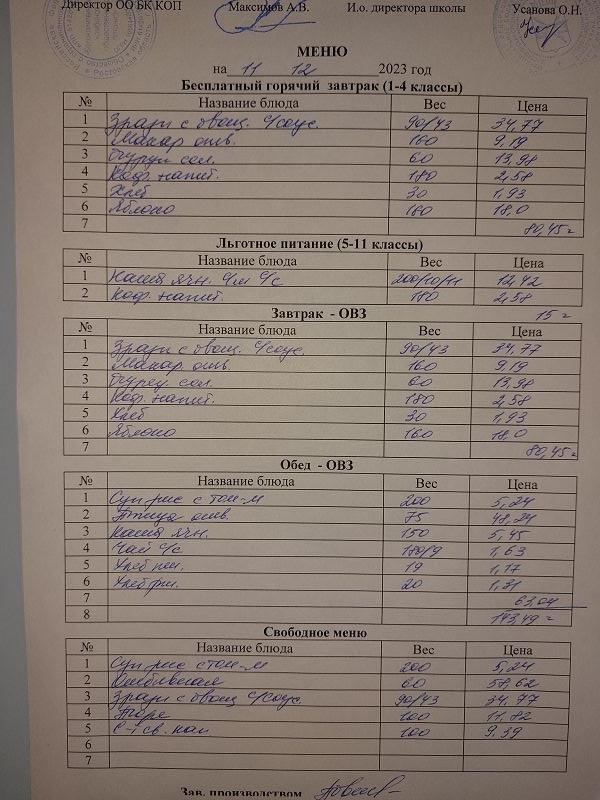 Директор ООБК КОП Максимов А.В. И.о. директора школы Усанова О.Н.
МЕНЮ
на 11 12 2023 год
Бесплатный горячий завтрак (1-4 классы)
№ Название блюда Вес Цена
1 Зразы с овощ. с/соус. 90/43 34,77
2 Макар. отв. 160 9,19
3 Огурец сол. 60 13,98
4 Коф. напит. 180 2,58
5 Хлеб 30 1,93
6 Яблоко 160 18,0
7 80,45
Льготное питание (5-11 классы)
№ Название блюда Вес Цена
1 Каша ячн. с/м с/с 200/10/11 12,42
2 Коф. напит. 180 2,58
Завтрак - ОВЗ 15
№ Название блюда Вес Цена
1 Зразы с овощ. с/соус. 90/43 34,77
2 Макар. отв. 160 9,19
3 Огурец. сол. 60 13,98
4 Коф. напит. 180 2,58
5 Хлеб 30 1,93
6 Яблоко 160 18,0
7 80,45
Обед - ОВЗ
№ Название блюда Вес Цена
1 Суп рис с том-м 200 5,24
2 Птица отв. 75 48,24
3 Каша ячн. 150 5,45
4 Чай с/с 180/9 1,63
5 Хлеб пш. 19 1,17
6 Хлеб рж. 20 1,31
7 63,04
8 143,49
Свободное меню
№ Название блюда Вес Цена
1 Суп рис с том-м 200 5,24
2 Отбивная 60 58,62
3 Зразы с овощ с/соус. 90/43 34,77
4 Пюре 100 11,82
5 100 9,39
6
7
Зав. производством